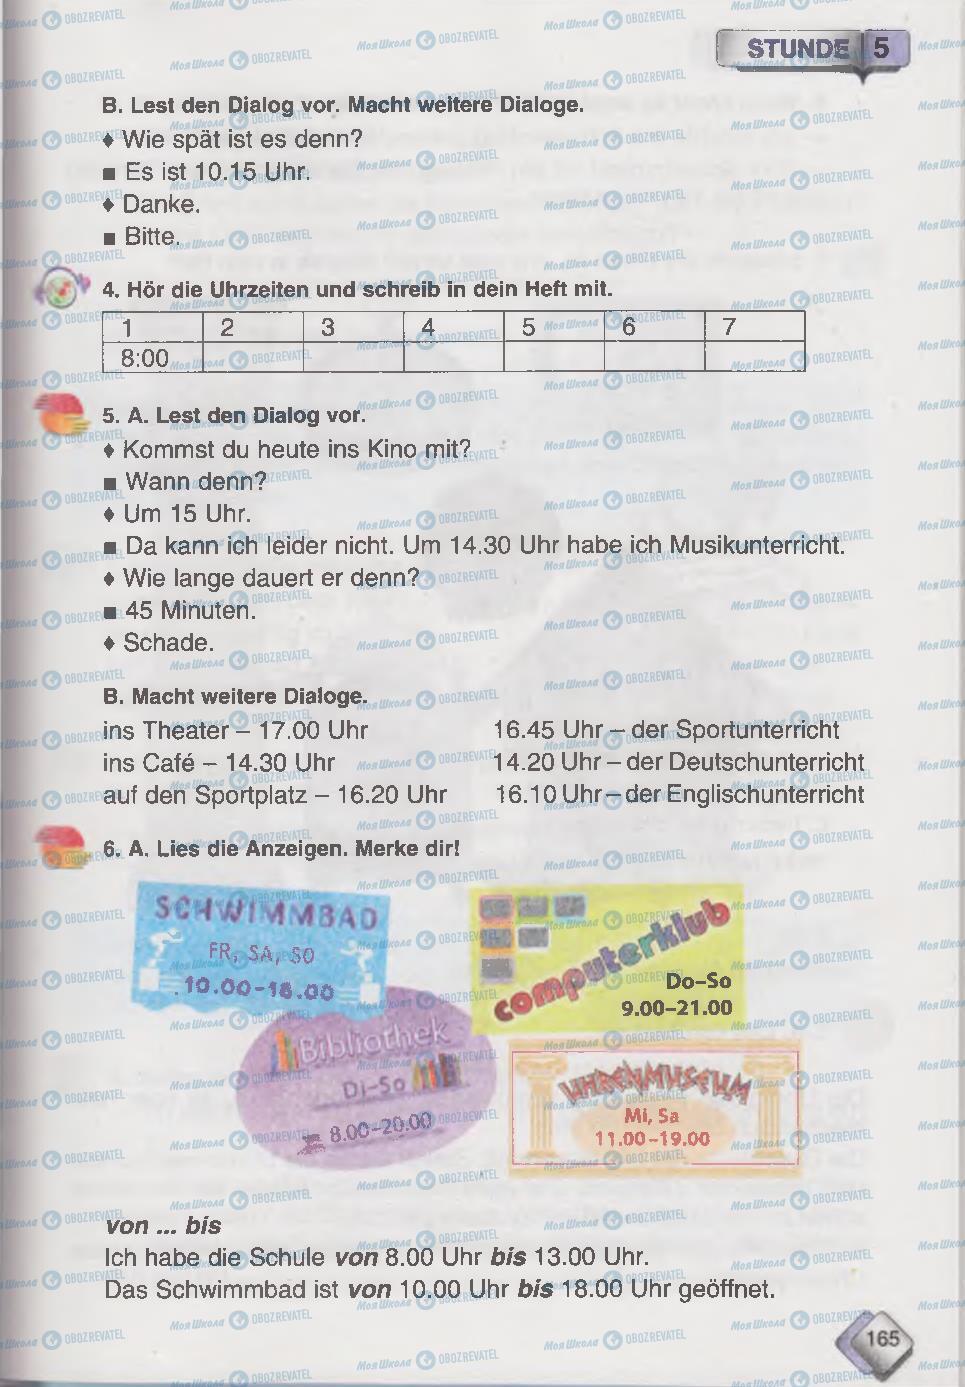 STUNDE 5
B. Lest den Dialog vor. Macht weitere Dialoge.
♦ Wie spät ist es denn?
■ Es ist 10.15 Uhr.
♦ Danke.
■ Bitte.
4. Hör die Uhrzeiten und schreib in dein Heft mit.
1 2 3 4 5 6 7
8:00
5. A. Lest den Dialog vor.
♦ Kommst du heute ins Kino mit?
■ Wann denn?
♦ Um 15 Uhr.
■ Da kann ich leider nicht. Um 14.30 Uhr habe ich Musikunterricht.
♦ Wie lange dauert er denn?
■ 45 Minuten.
♦ Schade.
B. Macht weitere Dialoge.
ins Theater – 17.00 Uhr 16.45 Uhr – der Sportunterricht
ins Café – 14.30 Uhr 14.20 Uhr – der Deutschunterricht
auf den Sportplatz – 16.20 Uhr 16.10 Uhr – der Englischunterricht
6. A. Lies die Anzeigen. Merke dir!
SCHWIMMBAD
FR, SA, SO
10.00-18.00
computerklub
Do–So
9.00–21.00
Bibliothek
Di-So
8.00-20.00
UHRENMUSEUM
Mi, Sa
11.00-19.00
von ... bis
Ich habe die Schule von 8.00 Uhr bis 13.00 Uhr.
Das Schwimmbad ist von 10.00 Uhr bis 18.00 Uhr geöffnet.
165
МояШкола OBOZREVATEL